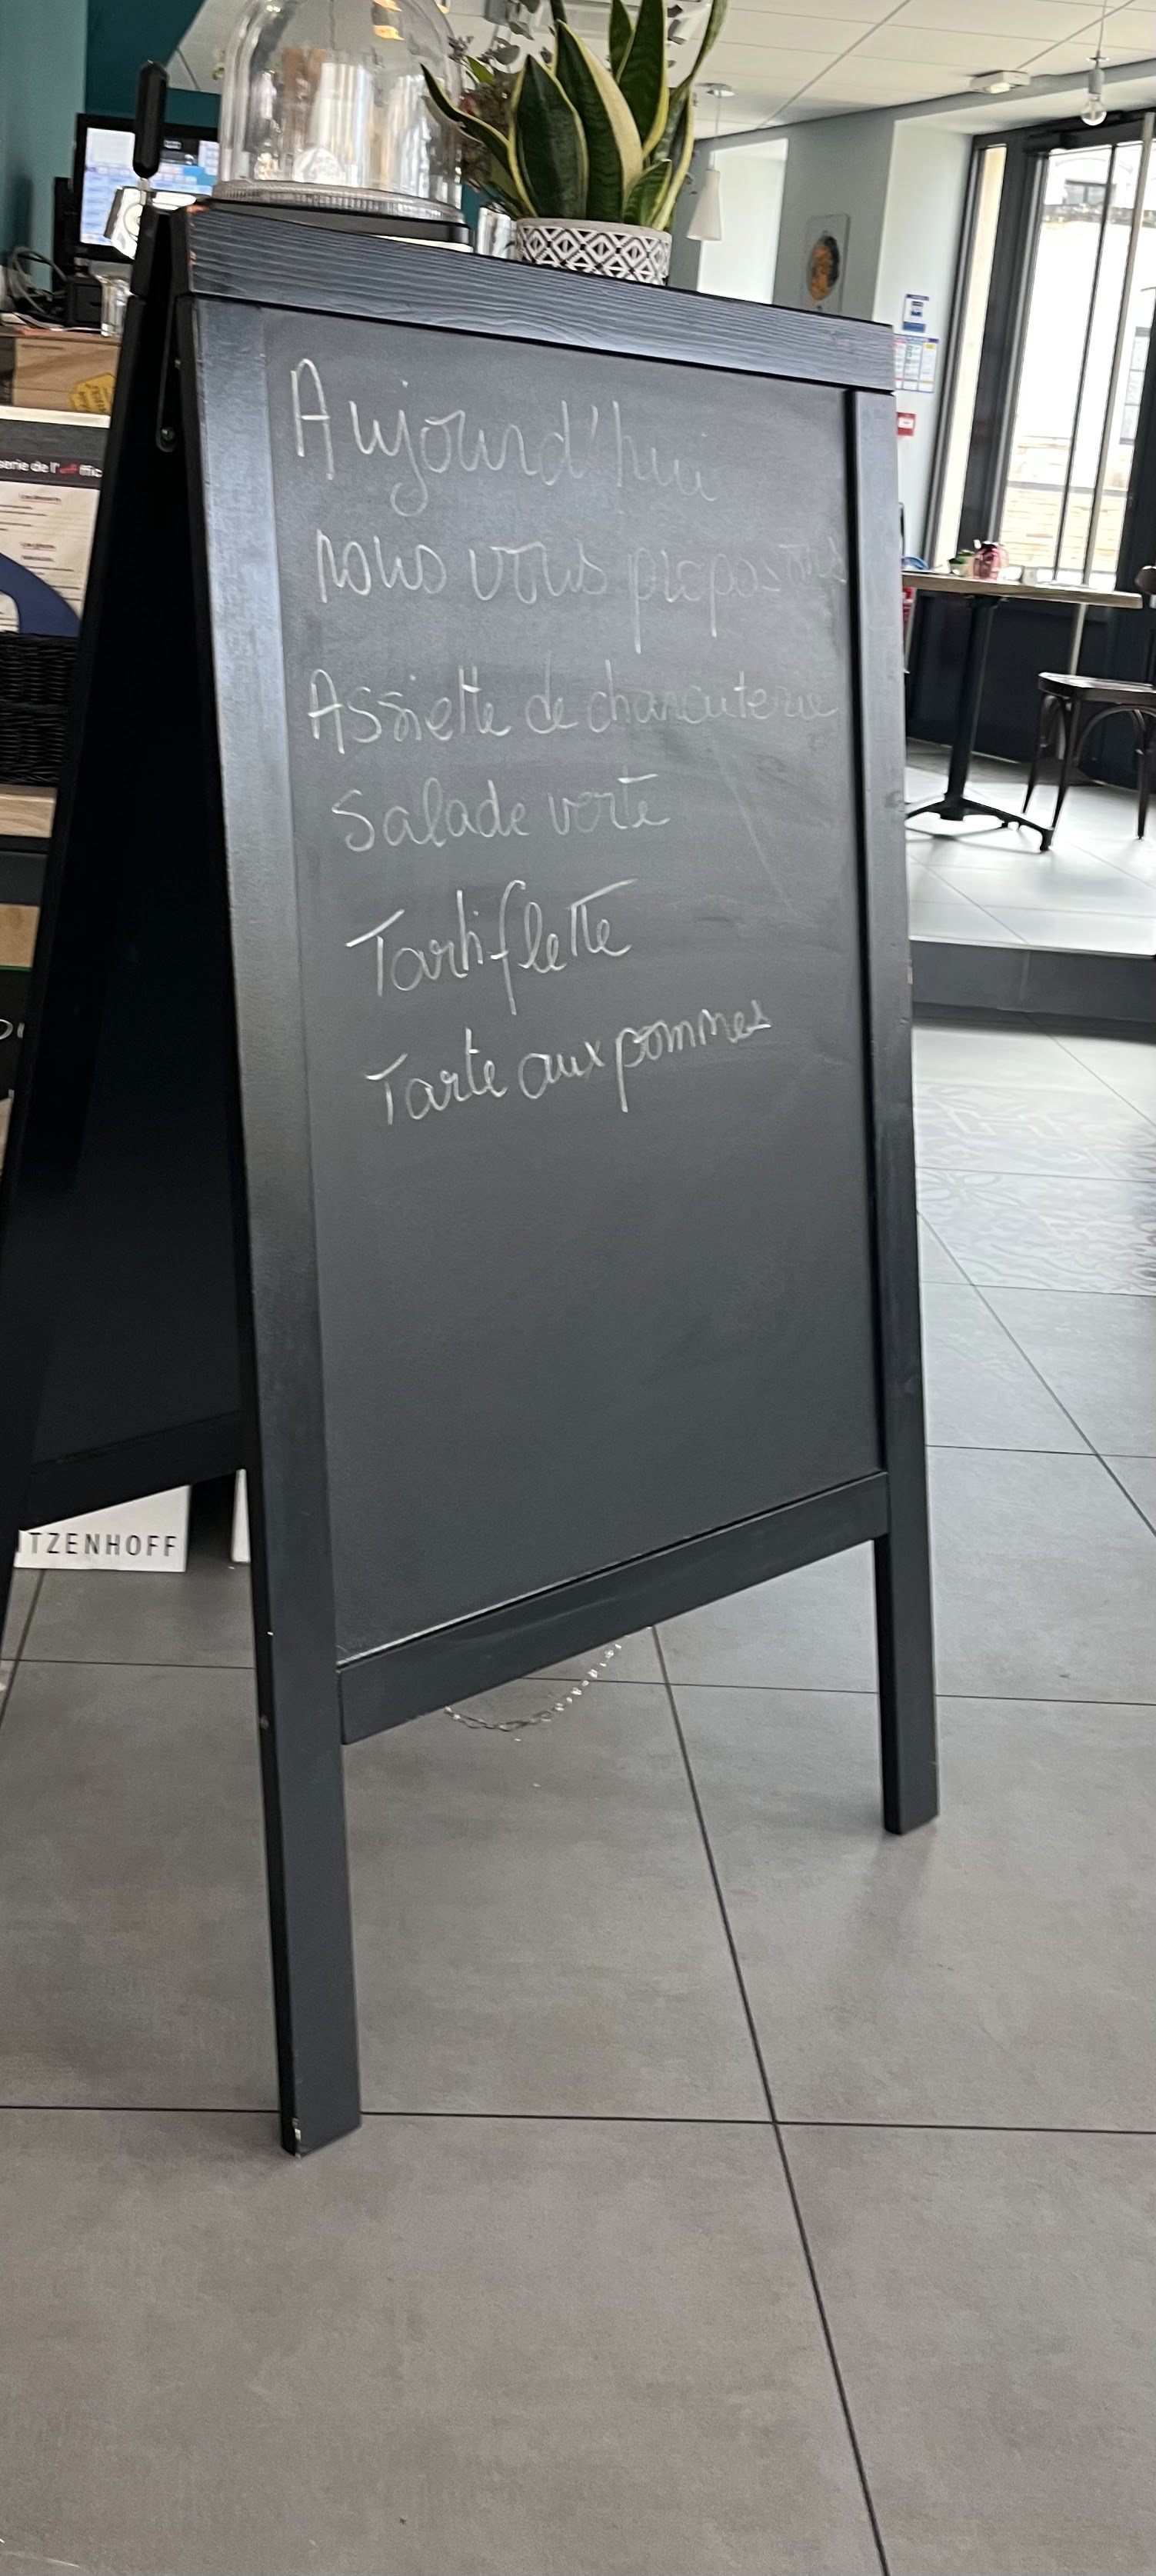 Aujourd'hui
nous vous proposons
Assiette de charcuterie
Salade verte
Tartiflette
Tarte aux pommes
serie de l'
ITZENHOFF